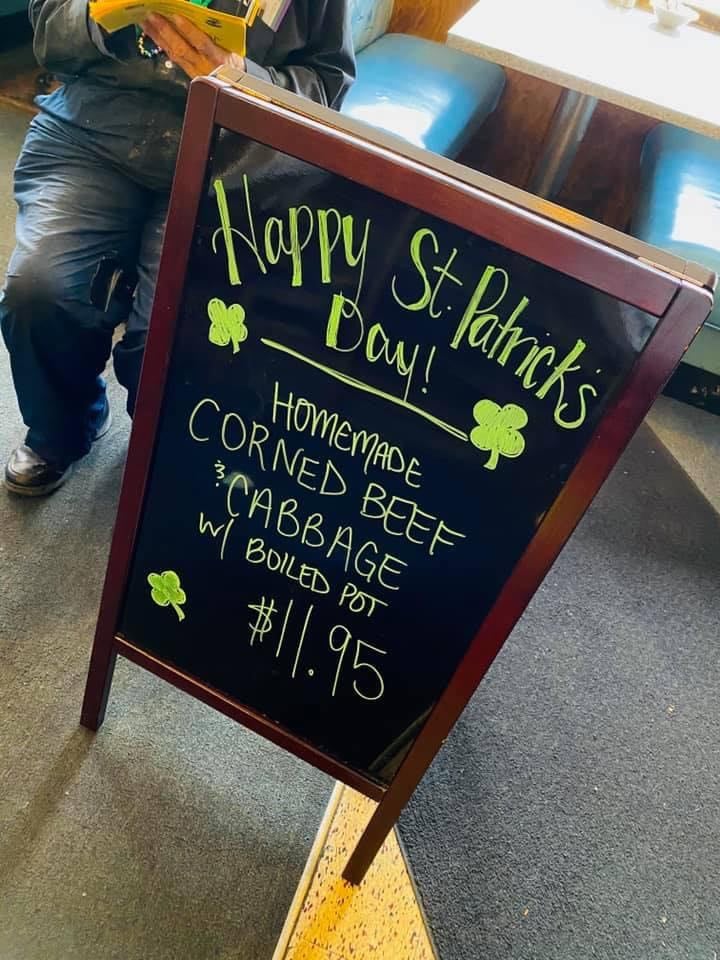 Happy St. Patrick's
Day!
HOMEMADE
CORNED BEEF
& CABBAGE
W/ BOILED POT
$11.95